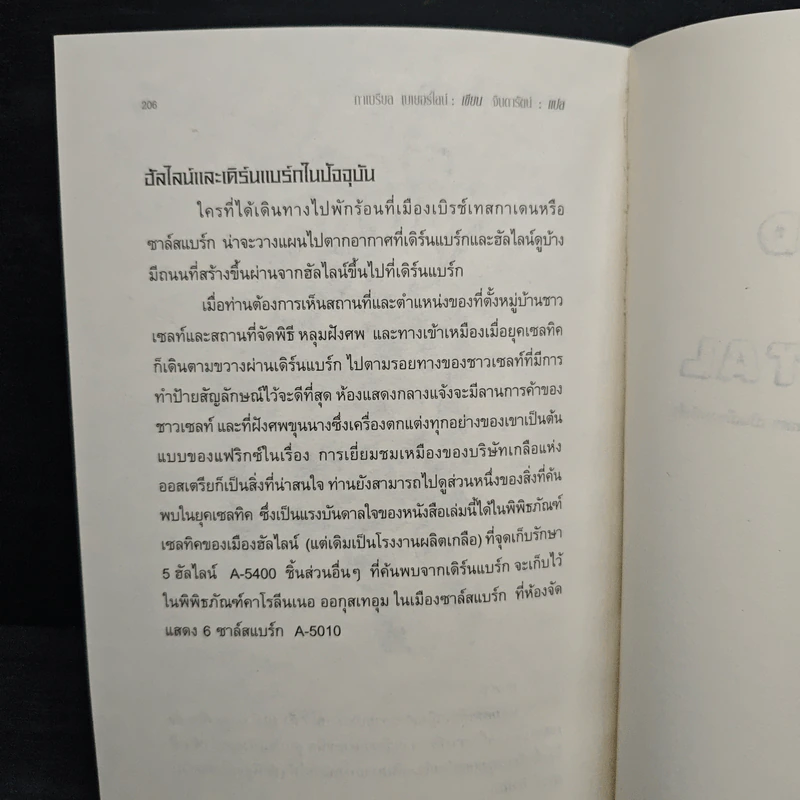 206
กาเบรียล เบเยอร์ไลน์ : เขียน จินดารัตน์ : แปล
ฮัลไลน์และเดิร์นแบร์กในปัจจุบัน
ใครที่ได้เดินทางไปพักร้อนที่เมืองเบิรช์เทสกาเดนหรือ
ซาล์สแบร์ก น่าจะวางแผนไปตากอากาศที่เดิร์นแบร์กและฮัลไลน์ดูบ้าง
มีถนนที่สร้างขึ้นผ่านจากฮัลไลน์ขึ้นไปที่เดิร์นแบร์ก
เมื่อท่านต้องการเห็นสถานที่และตำแหน่งของที่ตั้งหมู่บ้านชาว
เซลท์และสถานที่จัดพิธี หลุมฝังศพ และทางเข้าเหมืองเมื่อยุคเซลทิค
ก็เดินตามขวางผ่านเดิร์นแบร์ก ไปตามรอยทางของชาวเซลท์ที่มีการ
ทำป้ายสัญลักษณ์ไว้จะดีที่สุด ห้องแสดงกลางแจ้งจะมีลานการค้าของ
ชาวเซลท์ และที่ฝังศพขุนนางซึ่งเครื่องตกแต่งทุกอย่างของเขาเป็นต้น
แบบของแฟริกซ์ในเรื่อง การเยี่ยมชมเหมืองของบริษัทเกลือแห่ง
ออสเตรียก็เป็นสิ่งที่น่าสนใจ ท่านยังสามารถไปดูส่วนหนึ่งของสิ่งที่ค้น
พบในยุคเซลทิค ซึ่งเป็นแรงบันดาลใจของหนังสือเล่มนี้ได้ในพิพิธภัณฑ์
เซลทิคของเมืองฮัลไลน์ (แต่เดิมเป็นโรงงานผลิตเกลือ) ที่จุดเก็บรักษา
5 ฮัลไลน์ A-5400 ชิ้นส่วนอื่นๆ ที่ค้นพบจากเดิร์นแบร์ก จะเก็บไว้
ในพิพิธภัณฑ์คาโรลีนเนอ ออกุสเทอุม ในเมืองซาล์สแบร์ก ที่ห้องจัด
แสดง 6 ซาล์สแบร์ก A-5010